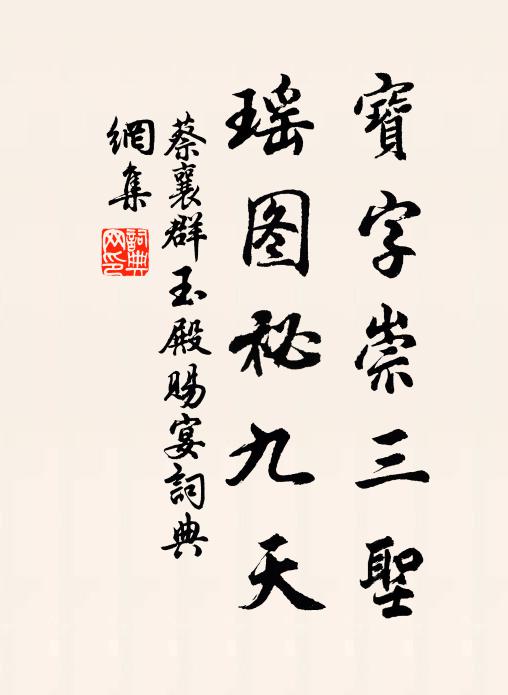 寶字崇三聖
瑶图秘九天
蔡襄群玉殿賜宴詞典
網集
詞典
网印